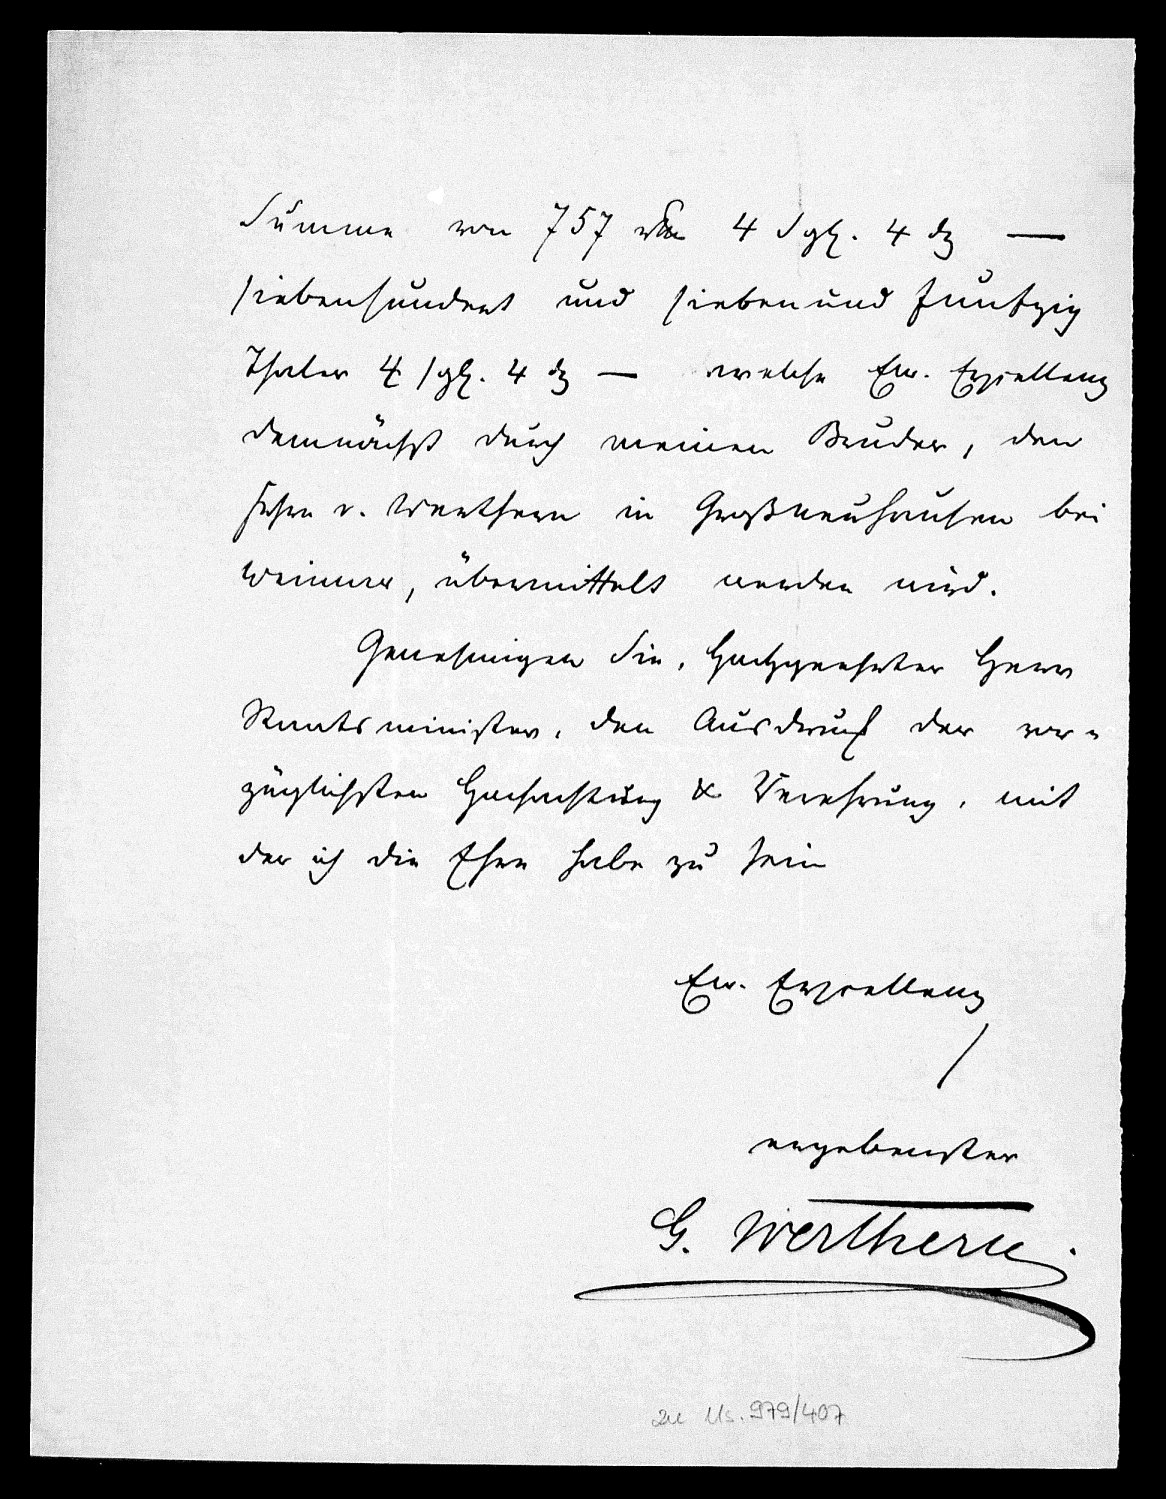 Summe von 757 4 Sgl. 4 dz —
siebenhundert und siebenund funfzig
Thaler 4 sgl. 4 dz — welche Ew. Exzellenz
demnächst durch meinen Bruder, den
v. Werthern in Großneuhausen bei
Weimar, übermittelt werden wird.
Genehmigen Sie, Hochgeehrter Herr
Staatsminister, den Ausdruck der vor=
züglichsten Hochachtung & Verehrung, mit
der ich die Ehre habe zu sein
Ew. Exzellenz
ergebenster
G. Werthern
zu Us. 979/407